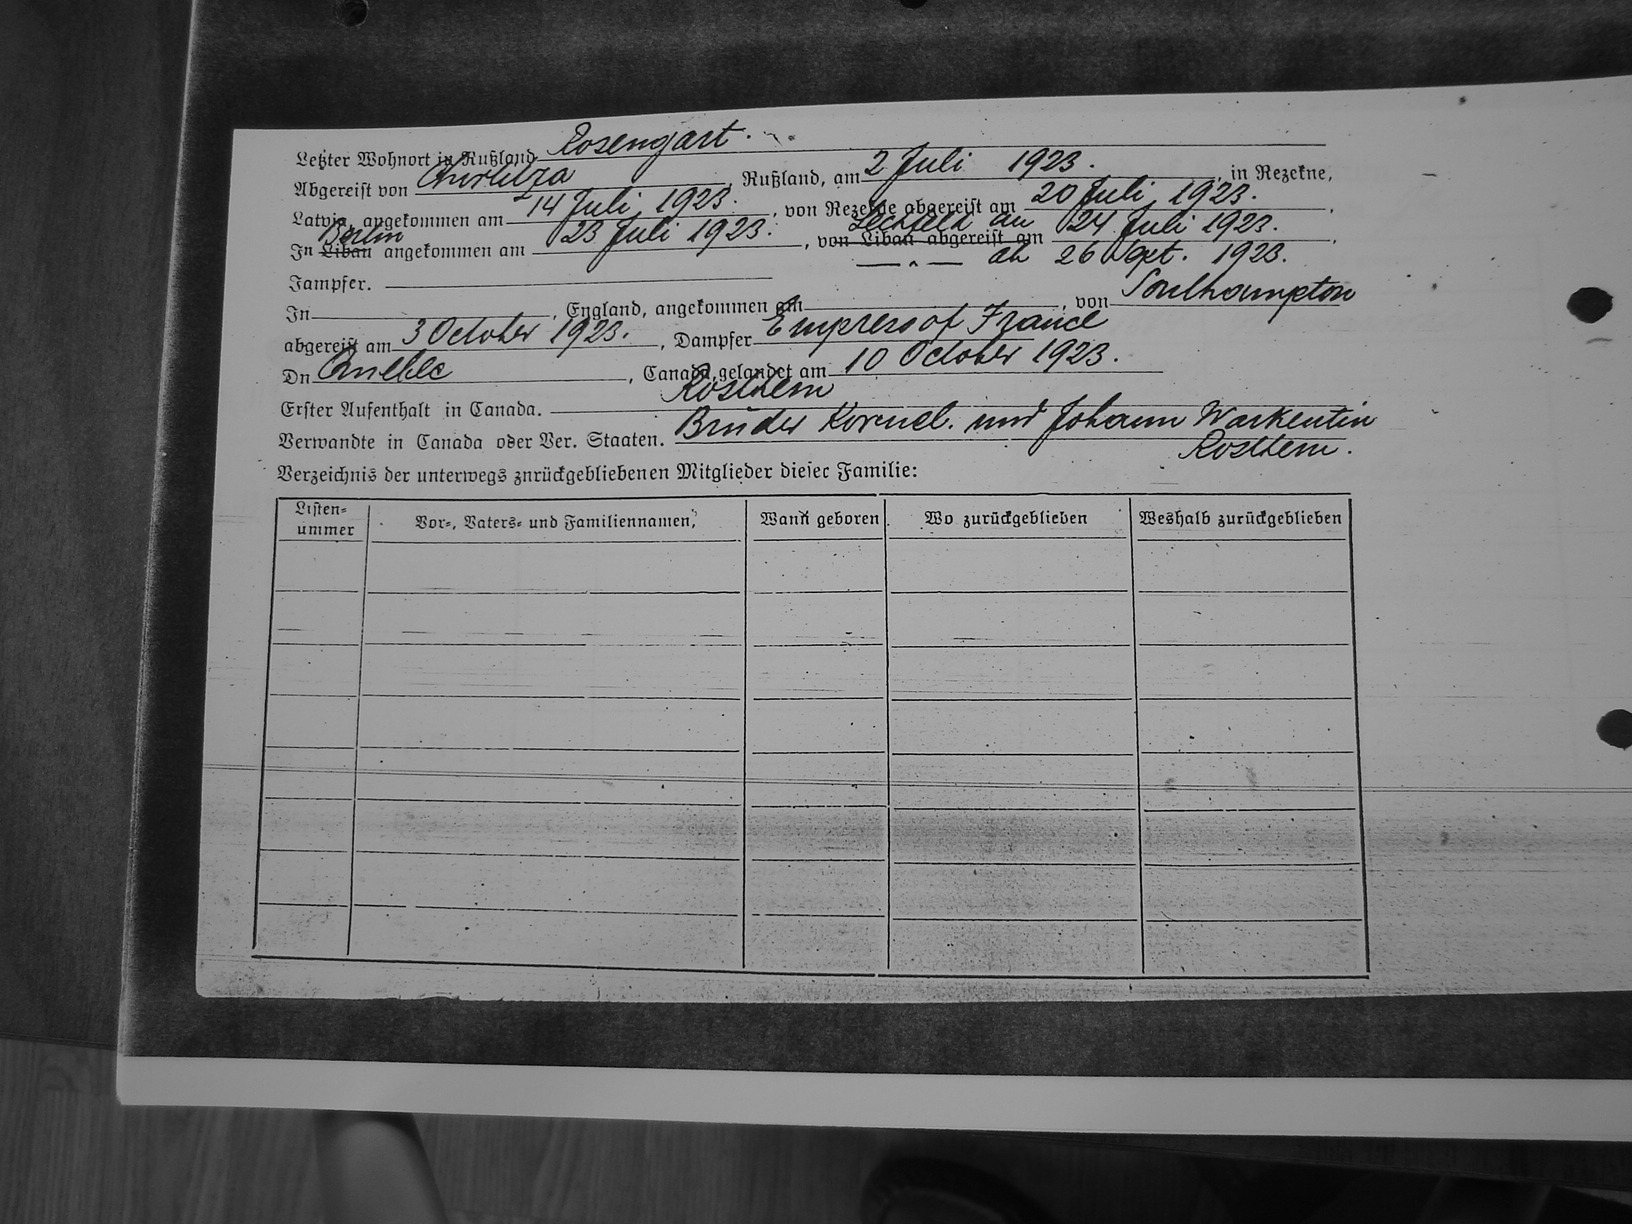 Letzter Wohnort in Rußland Rosengart.
Abgereist von Chortitza, Rußland, am 2 Juli 1923., in Rezekne,
Latvia, angekommen am 14 Juli, 1923., von Rezekne abgereist am 20 Juli, 1923.
Berlin Lechfeld an
In Liban angekommen am 23 Juli 1923., von Liban abgereist am 24 Juli 1923.
— " — ab 26 Sept. 1923.
Jampfer.
In, England, angekommen am, von Southampton
abgereist am 3 October 1923., Dampfer Empress of France
Dn Quebec, Canada, gelandet am 10 October 1923.
Erster Aufenthalt in Canada. Rosthern
Verwandte in Canada oder Ver. Staaten. Brüder Kornel. und Johann Warkentin
Rosthern.
Verzeichnis der unterwegs znrückgebliebenen Mitglieder dieser Familie:
Listen-
ummer
Vor-, Vaters- und Familiennamen,
Wann geboren
Wo zurückgeblieben
Weshalb zurückgeblieben